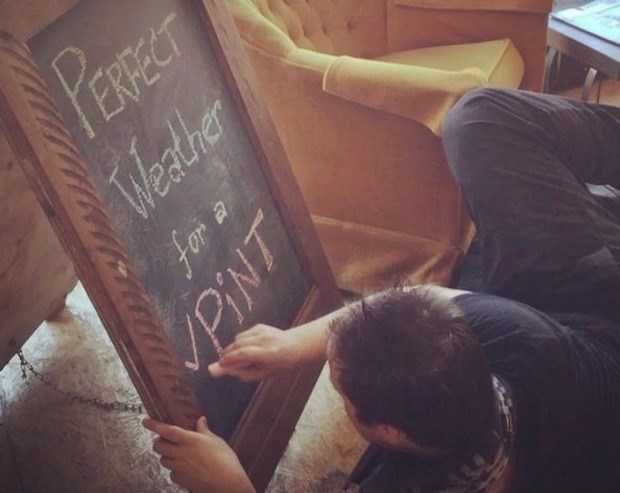 PERFECT
Weather
for a
PiNT